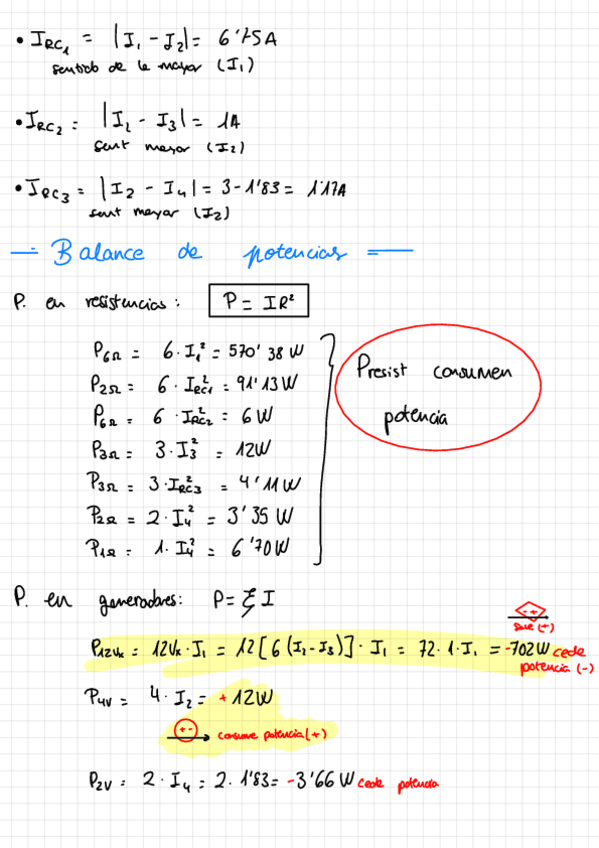 • I_RC1 = |I₁ - I₂| = 6'75A
sentido de la mayor (I₁)
• I_RC2 = |I₂ - I₃| = 1A
sent mayor (I₂)
• I_RC3 = |I₂ - I₄| = 3 - 1'83 = 1'17A
sent mayor (I₂)
— Balance de potencias —
P. en resistencias: P = IR²
P6Ω = 6·I₁² = 570'38 W
P2Ω = 6·I_RC1² = 91'13W
P6Ω = 6·I_RC2² = 6W
P3Ω = 3·I₃² = 12W
P3Ω = 3·I_RC3² = 4'11W
P2Ω = 2·I₄² = 3'35 W
P1Ω = 1·I₄² = 6'70W
Presist consumen
potencia
P. en generadores: P = ξ I
- +
sale (+)
P12Vx = 12Vx·I₁ = 12[6(I₂-I₃)]·I₁ = 72·1·I₁ = -702W cede
potencia (-)
P4V = 4·I₂ = +12W
+ -
consume potencia (+)
P2V = 2·I₄ = 2·1'83 = -3'66 W cede potencia